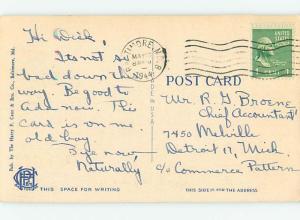 Hi Dick,
Its not so
bad down this
way. Be good to
Ada now. This
card is on me
old boy.
Bye now,
Naturally
THIS SPACE FOR WRITING
BALTIMORE, M
MAY
1944
1
POST CARD
Mr. R. G. Broene
Chief Accountant
7450 Melville
Detroit 17, Mich.
c/o Commerce Pattern
THIS SIDE IS FOR THE ADDRESS
Pub. by The Harry P. Cann & Bro. Co., Baltimore, Md.
MADE IN U.S.A.